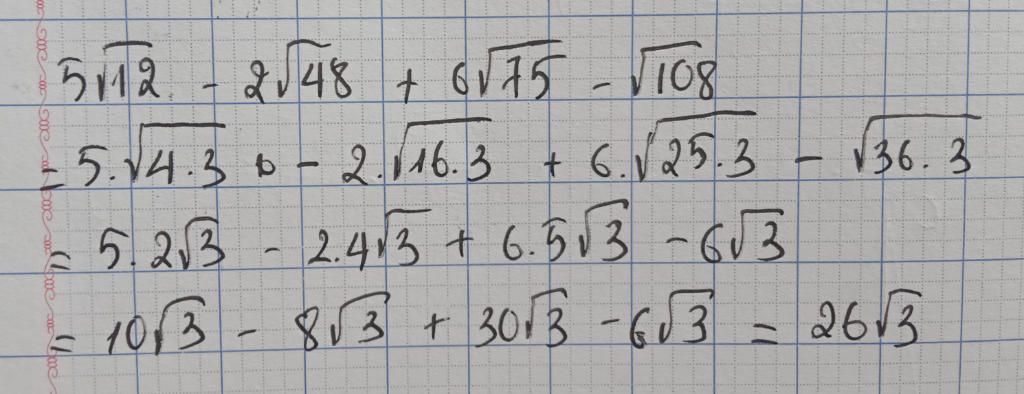 5√12 - 2√48 + 6√75 - √108
= 5.√4.3 - 2.√16.3 + 6.√25.3 - √36.3
= 5.2√3 - 2.4√3 + 6.5√3 - 6√3
= 10√3 - 8√3 + 30√3 - 6√3 = 26√3